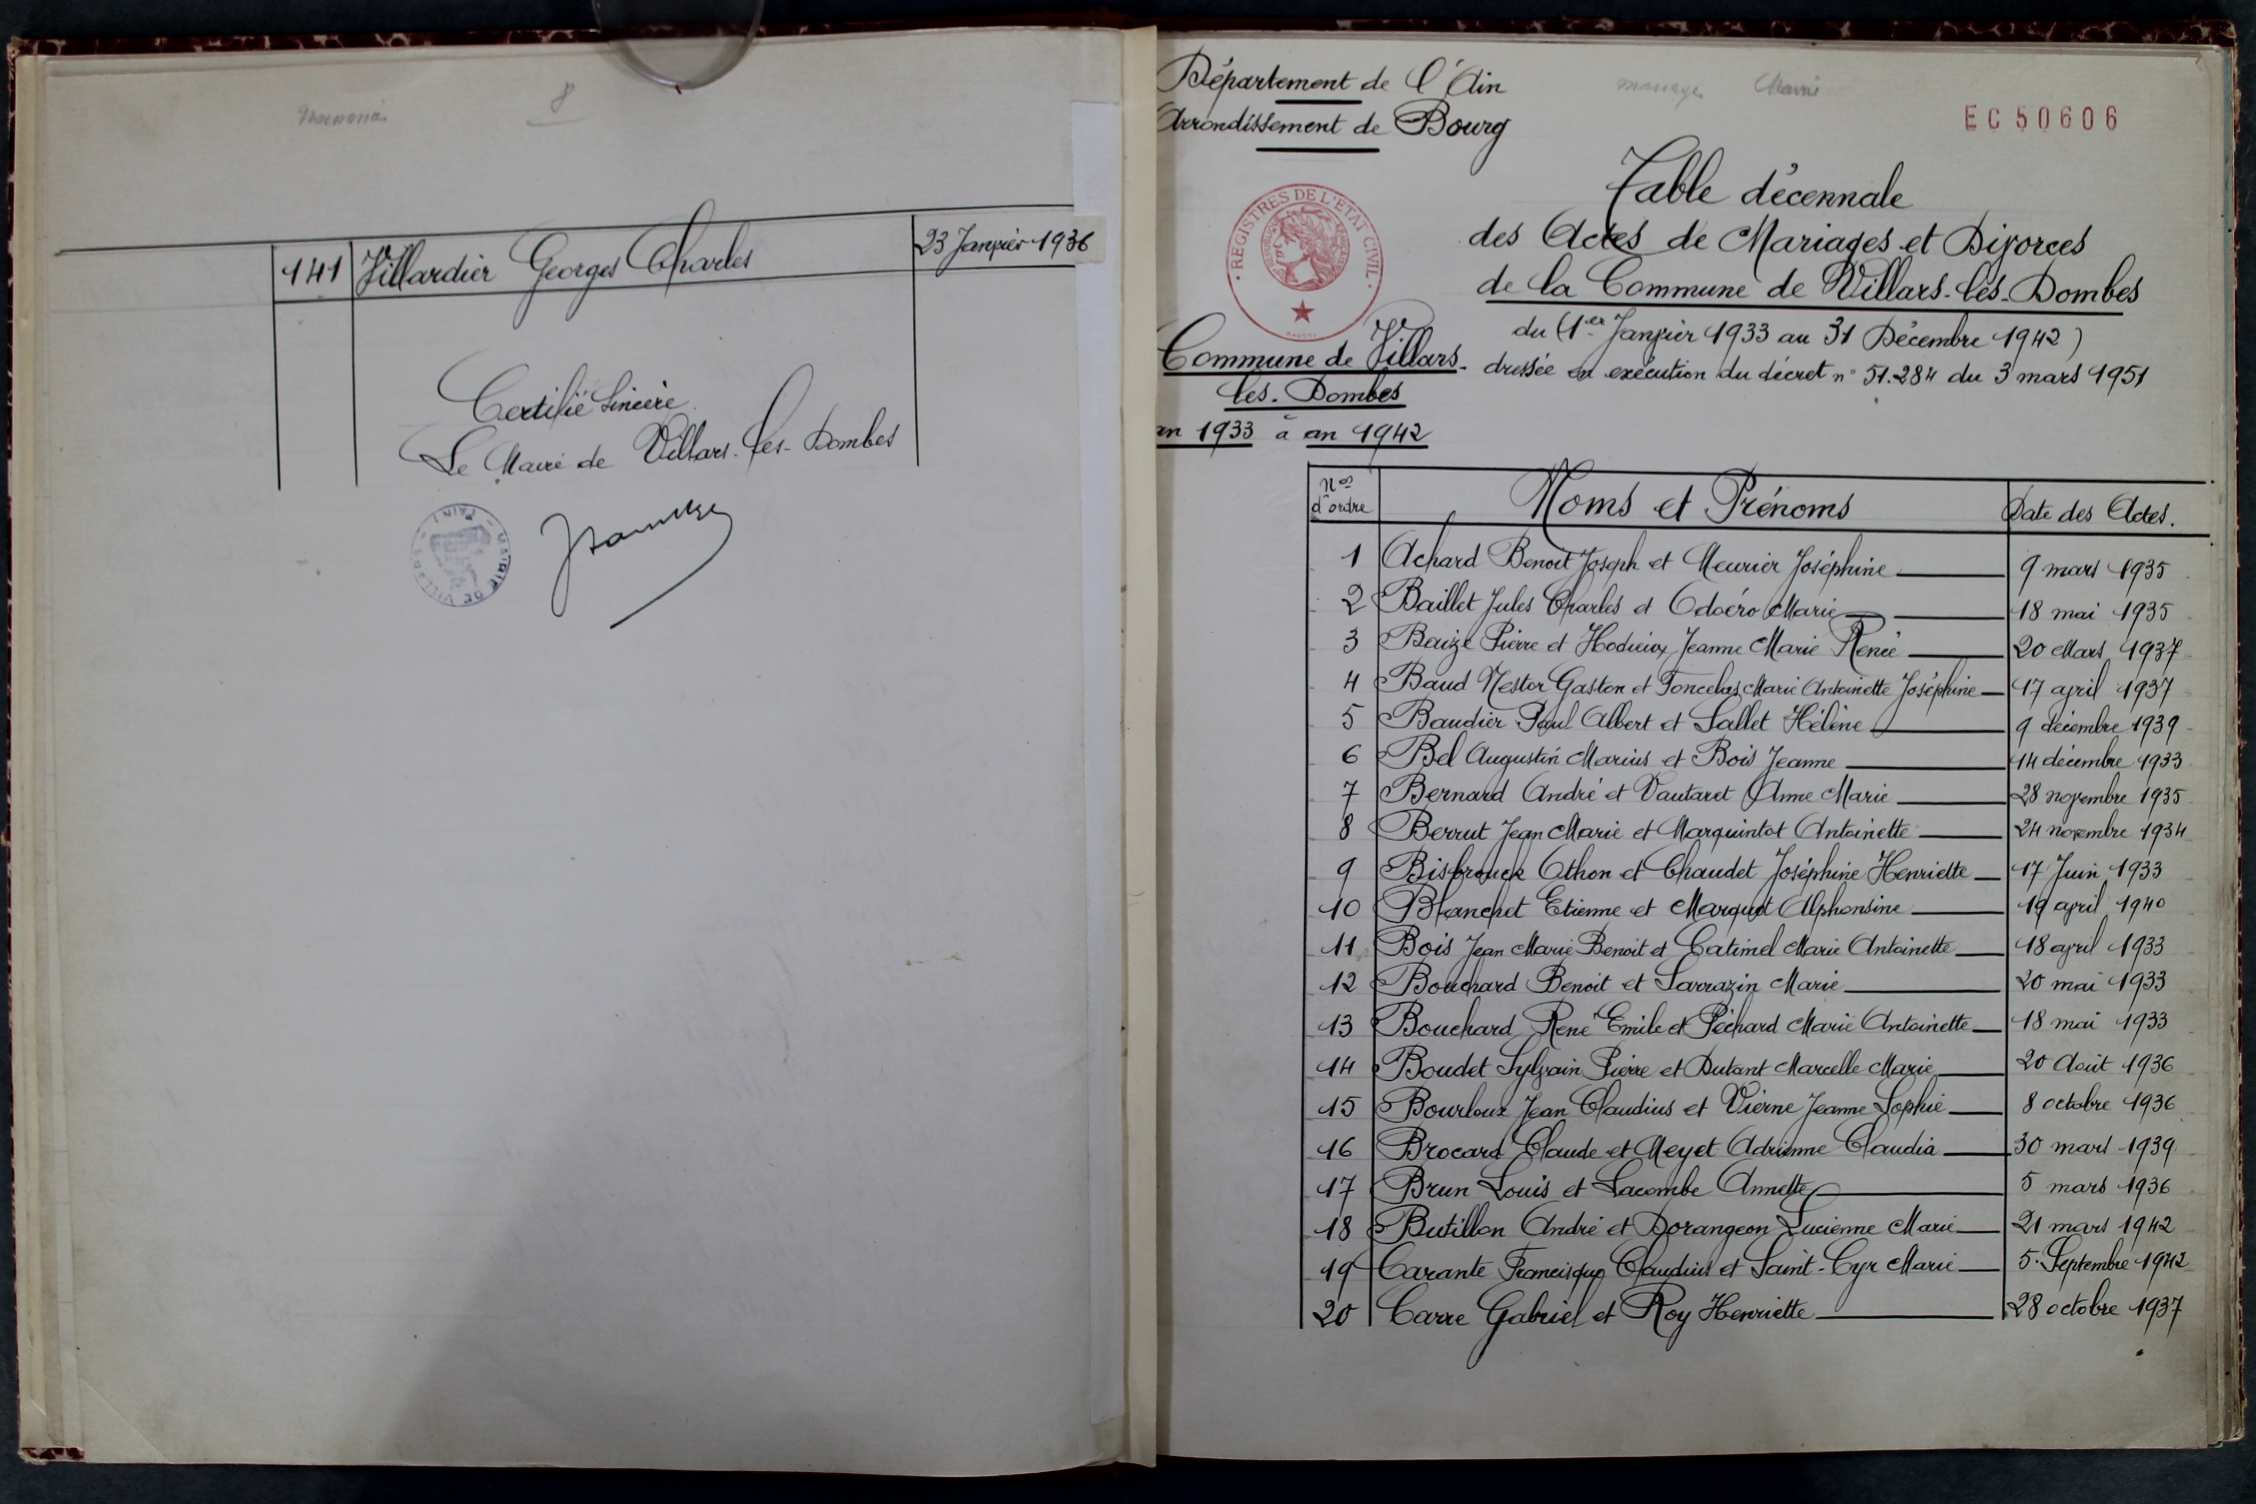 8
141 Villardier Georges Charles 23 Janvier 1936
Certifié Sincère
Le Maire de Villars-les-Dombes
Département de l'Ain
Arrondissement de Bourg
mariages Mairie
EC50606
REGISTRES DE L'ETAT CIVIL
Table décennale
des Actes de Mariages et Divorces
de la Commune de Villars-les-Dombes
du (1er Janvier 1933 au 31 Décembre 1942)
dressée en exécution du décret n° 51.284 du 3 mars 1951
Commune de Villars-
les-Dombes
an 1933 à an 1942
Nos d'ordre Noms et Prénoms Date des Actes.
1 Achard Benoit Joseph et Meurier Joséphine 9 mars 1935
2 Baillet Jules Charles et Odoéro Marie 18 mai 1935
3 Baize Pierre et Hodieux Jeanne Marie Renée 20 Mars 1937
4 Baud Nestor Gaston et Toncelas Marie Antoinette Joséphine 17 avril 1937
5 Baudier Paul Albert et Sallet Hélène 9 décembre 1939
6 Bel Augustin Marius et Bois Jeanne 14 décembre 1933
7 Bernard André et Vautaret Anne Marie 28 novembre 1935
8 Berrut Jean Marie et Marquintot Antoinette 24 novembre 1934
9 Bisbrouck Othon et Chaudet Joséphine Henriette 17 Juin 1933
10 Blanchet Etienne et Marquet Alphonsine 19 avril 1940
11 Bois Jean Marie Benoit et Catimel Marie Antoinette 18 avril 1933
12 Bouchard Benoit et Sarrazin Marie 20 mai 1933
13 Bouchard René Emile et Péchard Marie Antoinette 18 mai 1933
14 Boudet Sylvain Pierre et Dutant Marcelle Marie 20 Août 1936
15 Bourloux Jean Claudius et Vierne Jeanne Sophie 8 octobre 1936
16 Brocard Claude et Meyet Adrienne Claudia 30 mars 1939
17 Brun Louis et Lacombe Annette 5 mars 1936
18 Butillon André et Dorangeon Lucienne Marie 21 mars 1942
19 Carante Francisque Claudius et Saint-Cyr Marie 5 Septembre 1942
20 Carre Gabriel et Roy Henriette 28 octobre 1937